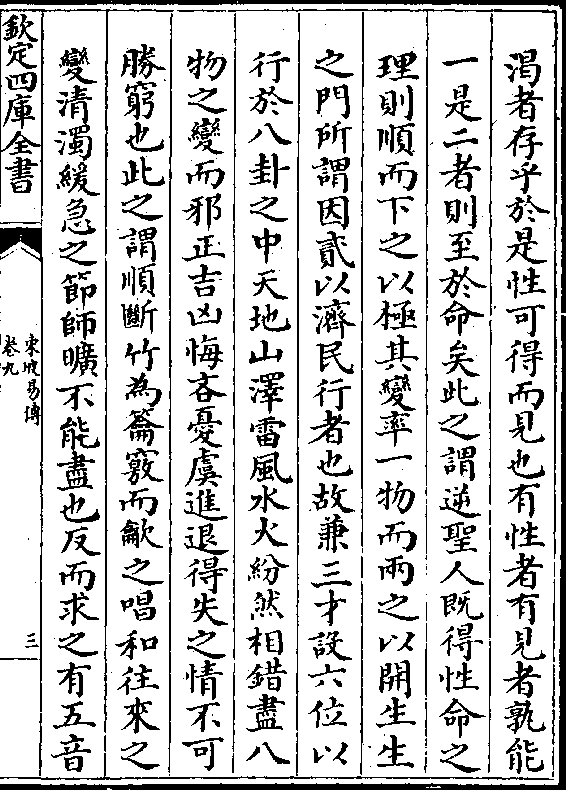 渴者存乎於是性可得而見也有性者有見者孰能
一是二者則至於命矣此之謂逆聖人既得性命之
理則順而下之以極其變率一物而兩之以開生生
之門所謂因貳以濟民行者也故兼三才設六位以
行於八卦之中天地山澤雷風水火紛然相錯盡八
物之變而邪正吉凶悔吝憂虞進退得失之情不可
勝窮也此之謂順斷竹為籥竅而龡之唱和往來之
變清濁緩急之節師曠不能盡也反而求之有五音
欽定四庫全書
東坡易傳
卷九
三